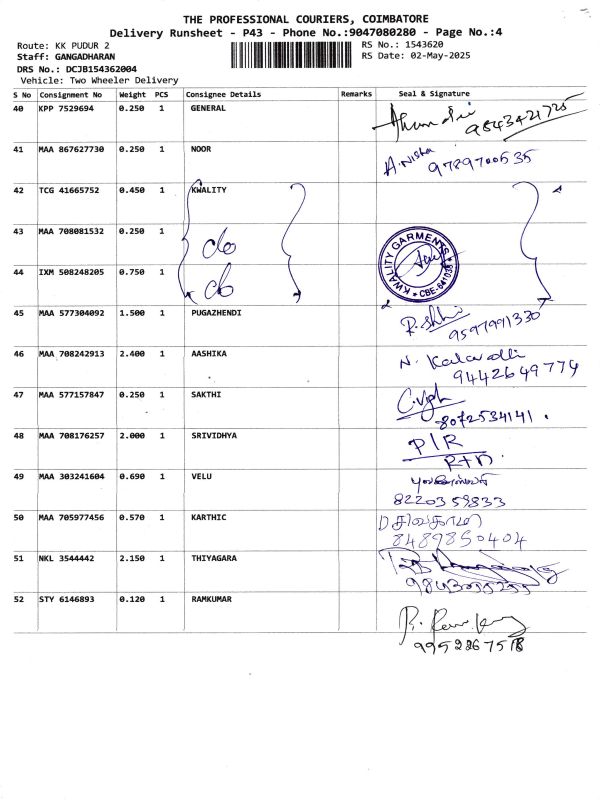 THE PROFESSIONAL COURIERS, COIMBATORE
Delivery Runsheet - P43 - Phone No.:9047080280 - Page No.:4
Route: KK PUDUR 2
RS No.: 1543620
Staff: GANGADHARAN
RS Date: 02-May-2025
DRS No.: DCJB154362004
Vehicle: Two Wheeler Delivery
S No Consignment No Weight PCS Consignee Details Remarks Seal & Signature
40 KPP 7529694 0.250 1 GENERAL
9843421725
41 MAA 867627730 0.250 1 NOOR A. Nisha
9789700535
42 TCG 41665752 0.450 1 KWALITY
43 MAA 708081532 0.250 1
KWALITY GARMENTS
* CBE-641038 *
44 IXM 508248205 0.750 1
45 MAA 577304092 1.500 1 PUGAZHENDI
9597991330
46 MAA 708242913 2.400 1 AASHIKA N. Kalavalli
9442649774
47 MAA 577157847 0.250 1 SAKTHI
8072534141.
48 MAA 708176257 2.000 1 SRIVIDHYA P/R
RTN.
49 MAA 303241604 0.690 1 VELU
8220359833
50 MAA 705977456 0.570 1 KARTHIC D சிவகாமி
8489850404
51 NKL 3544442 2.150 1 THIYAGARA
52 STY 6146893 0.120 1 RAMKUMAR